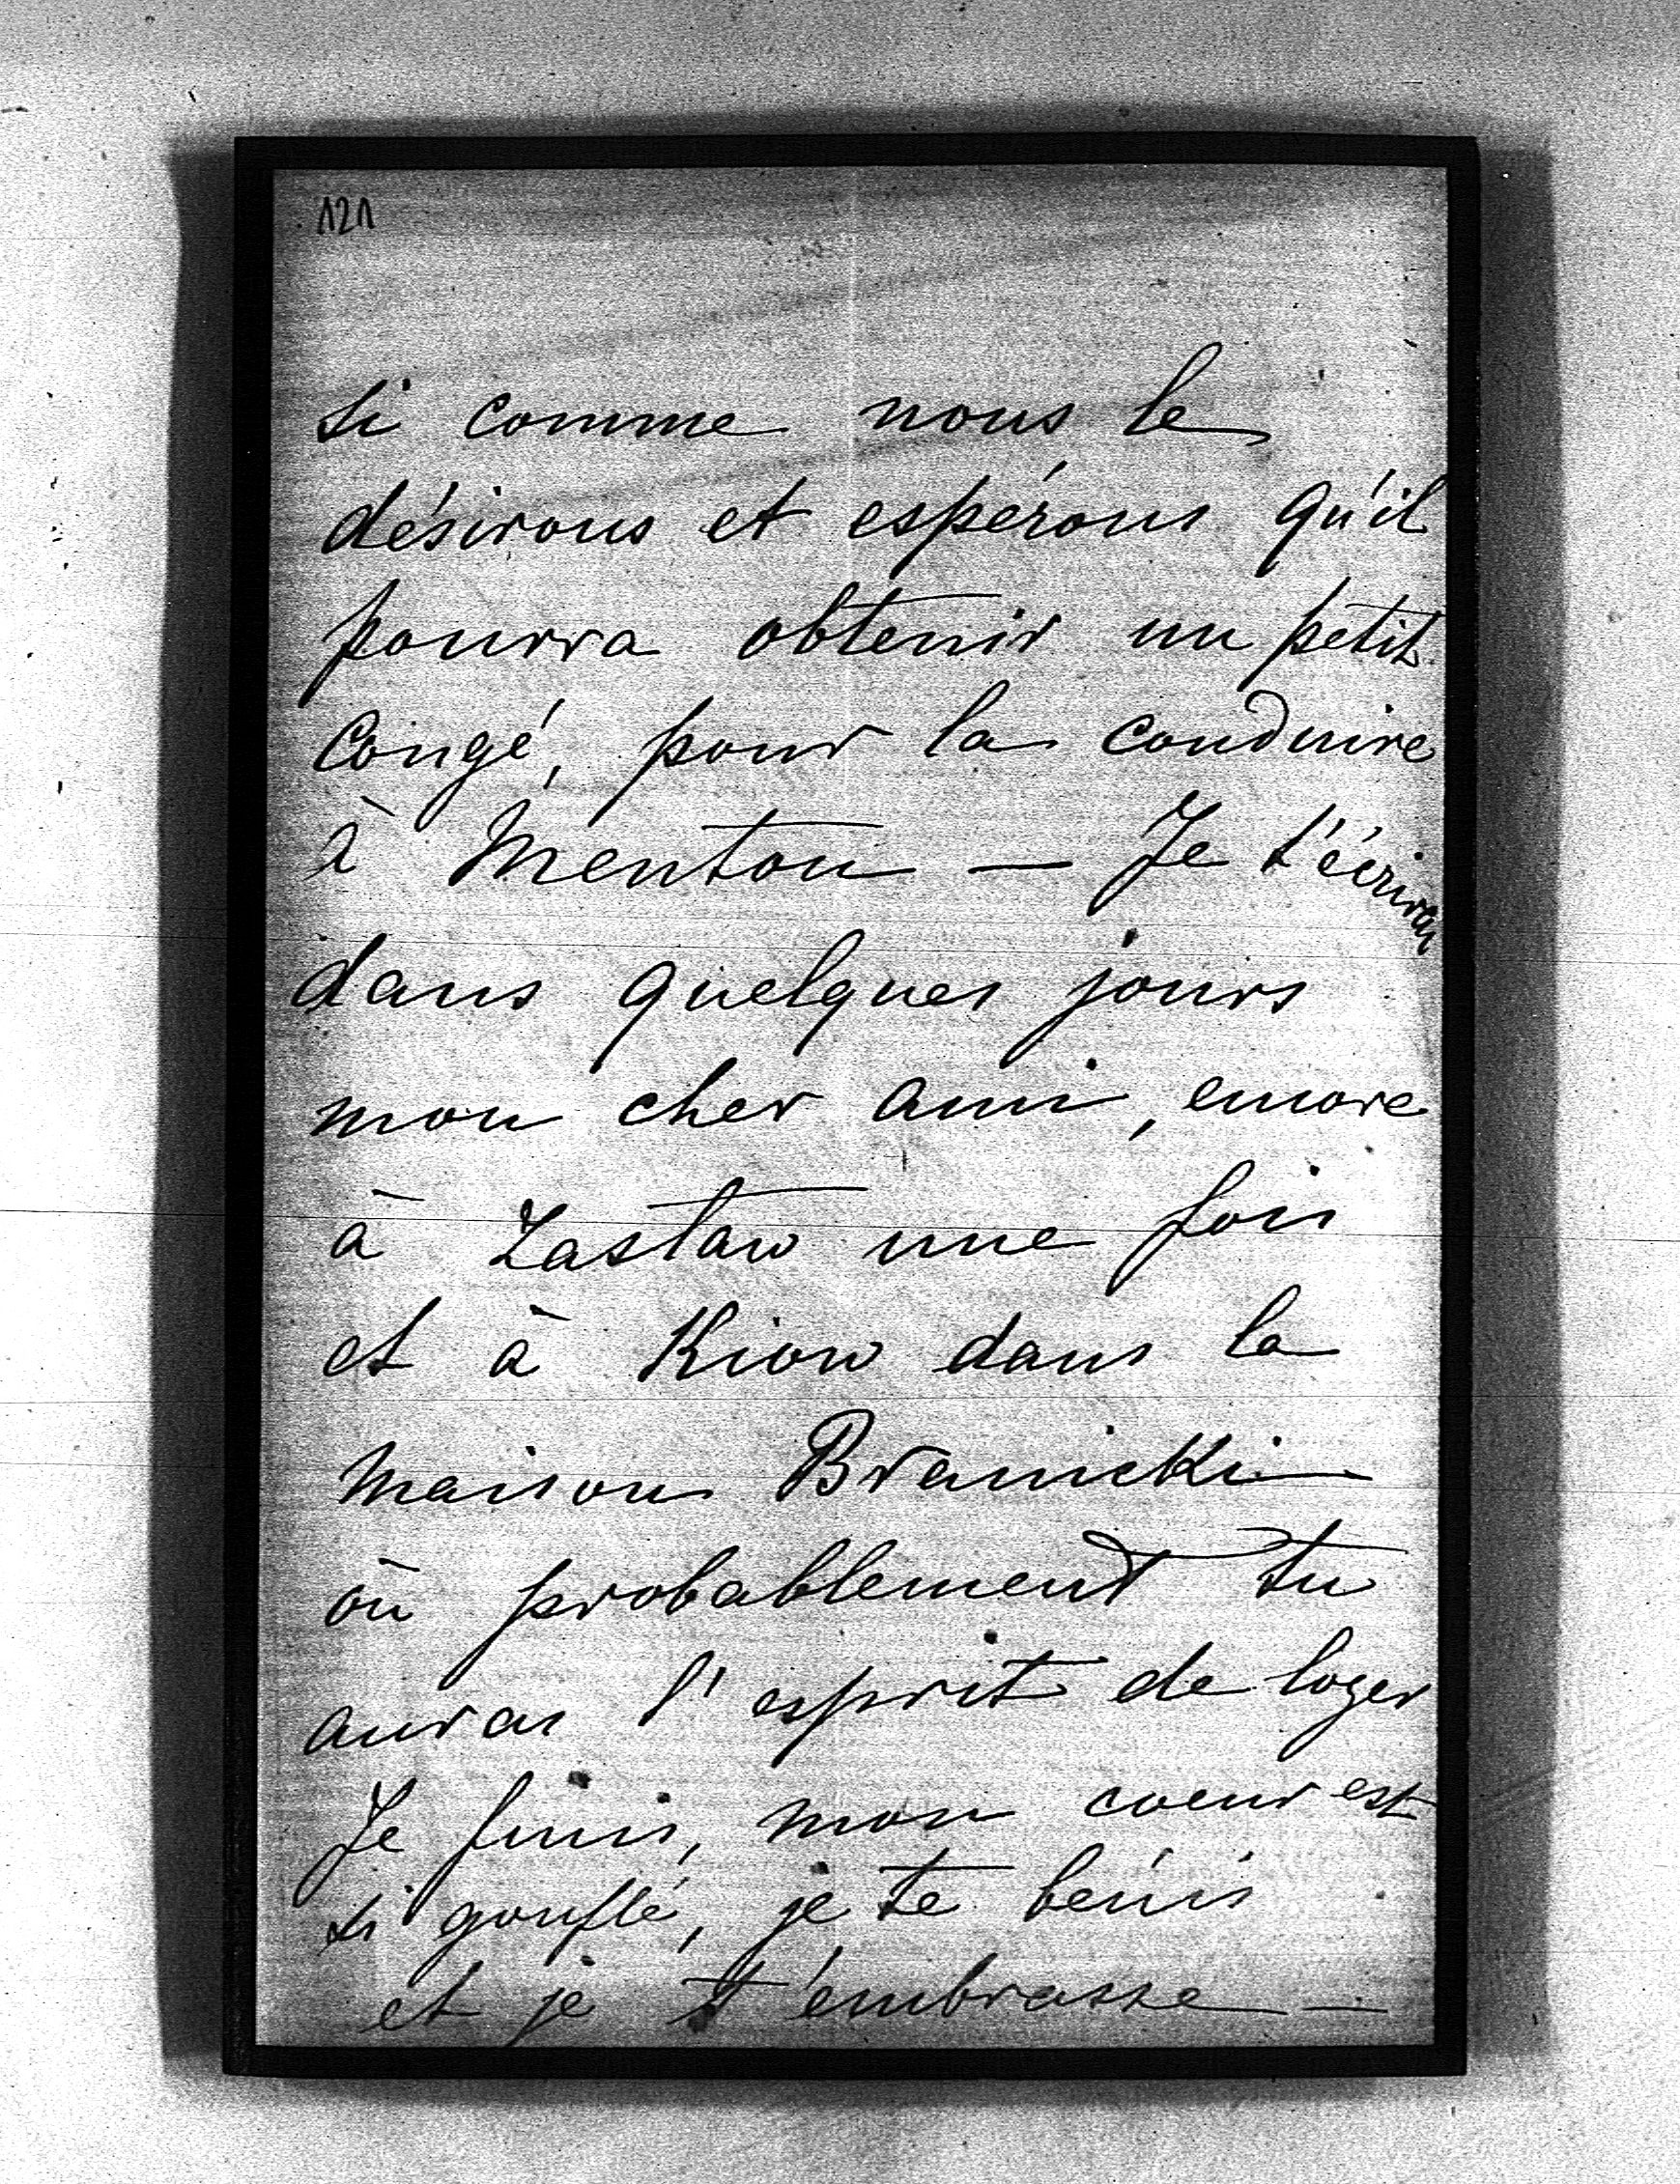 121
si comme nous le
désirons et espérons qu'il
pourra obtenir un petit
Congé, pour la conduire
à Menton — Je t'écrirai
dans quelques jours
mon cher ami, encore
à Zastaw une fois
et à Kiow dans la
maison Branicki
où probablement tu
auras l'esprit de loger
Je finis, mon coeur est
si gonflé, je te bénis
et je t'embrasse —